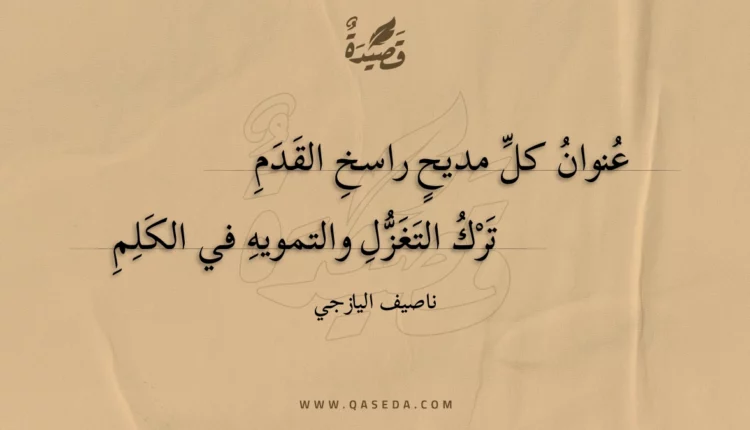 قَصِيدَةٌ
عُنوانُ كلِّ مديحٍ راسخِ القَدَمِ
تَرْكُ التَغَزُّلِ والتمويهِ في الكَلِمِ
ناصيف اليازجي
WWW.QASEDA.COM